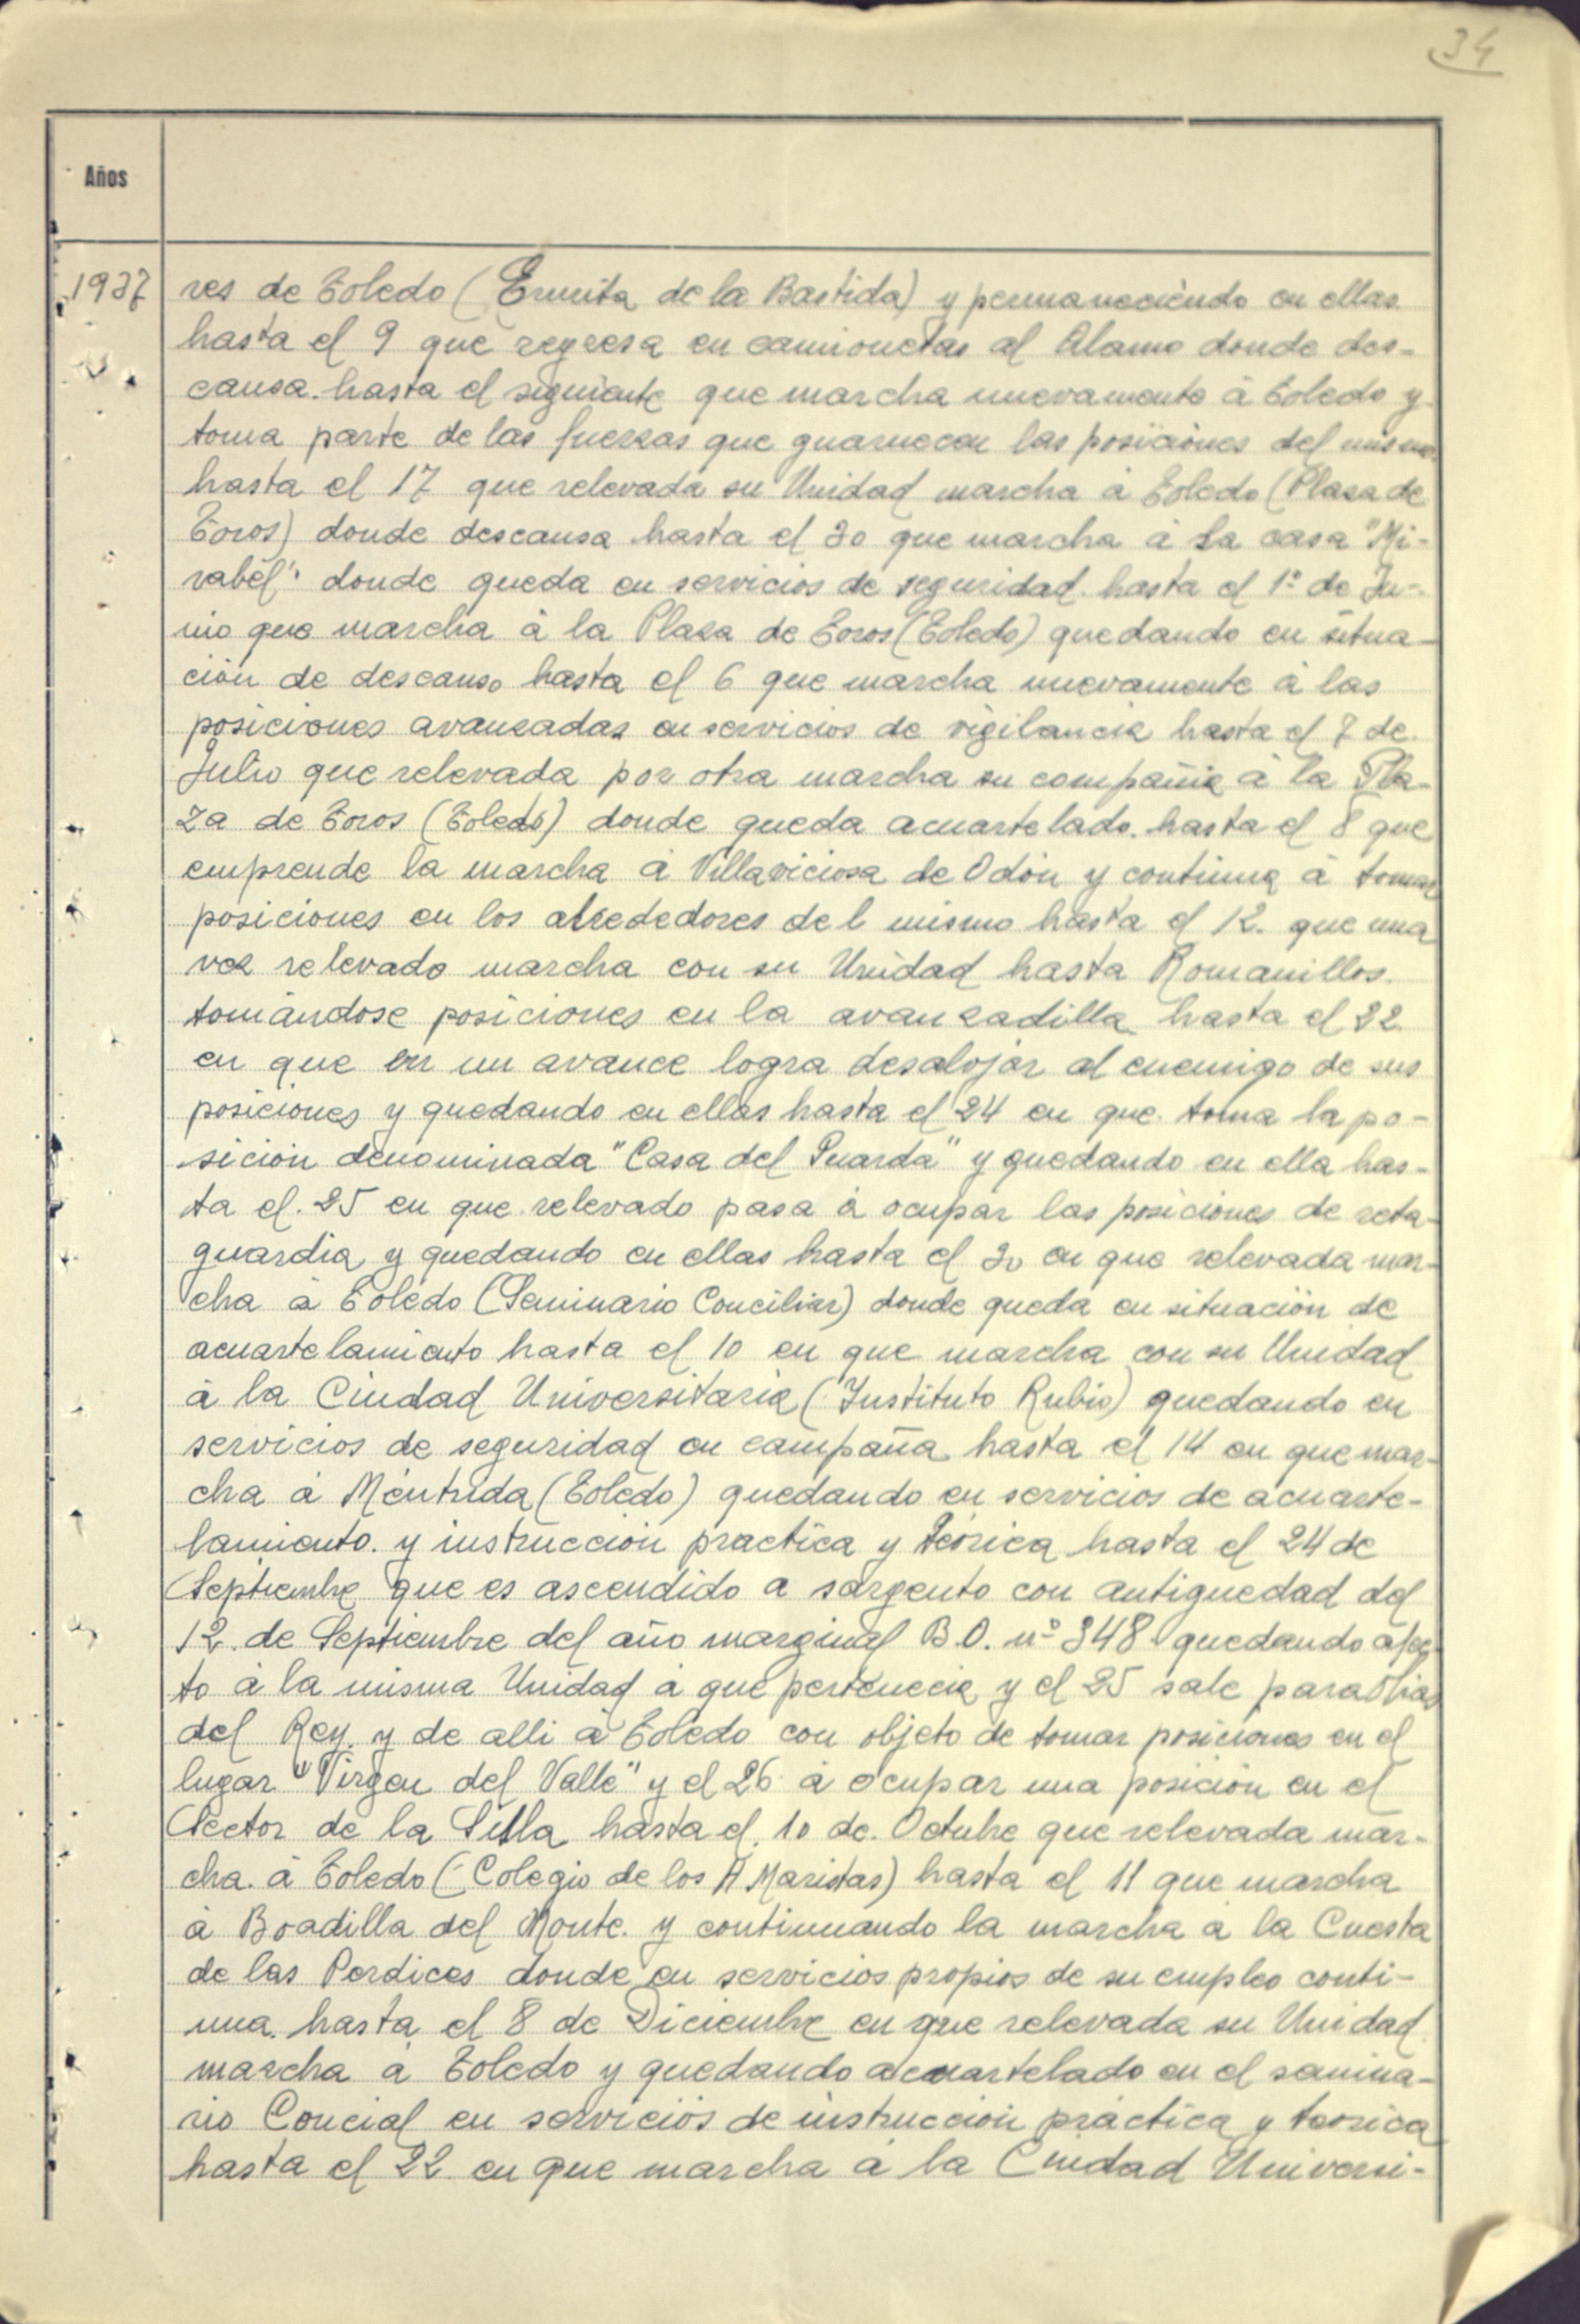 34
Años
1937
res de Toledo (Ermita de la Bastida) y permaneciendo en ellas
hasta el 9 que regresa en camionetas al Alamo donde des-
cansa. hasta el siguiente que marcha nuevamente á Toledo y
toma parte de las fuerzas que guarnecen las posiciones del mismo
hasta el 17 que relevada su Unidad marcha á Toledo (Plaza de
Toros) donde descansa hasta el 30 que marcha á La casa "Mi-
rabel". donde queda en servicios de seguridad hasta el 1º de Ju-
nio que marcha á la Plaza de Toros (Toledo) quedando en situa-
ción de descanso hasta el 6 que marcha nuevamente á las
posiciones avanzadas en servicios de vigilancia hasta el 7 de
Julio que relevada por otra marcha su compañia á la Pla-
za de Toros (Toledo) donde queda acuartelado. hasta el 8 que
emprende la marcha á Villaviciosa de Odón y continua á tomar
posiciones en los alrededores del mismo hasta el 12. que una
vez relevado marcha con su Unidad hasta Romanillos.
tomándose posiciones en la avanzadilla hasta el 22
en que en un avance logra desalojar al enemigo de sus
posiciones y quedando en ellas hasta el 24 en que toma la po-
sición denominada "Casa del Guarda" y quedando en ella has-
ta el. 25 en que relevado pasa á ocupar las posiciones de reta-
guardia y quedando en ellas hasta el 30 en que relevada mar-
cha á Toledo (Seminario Conciliar) donde queda en situación de
acuartelamiento hasta el 10 en que marcha con su Unidad
á la Ciudad Universitaria (Instituto Rubio) quedando en
servicios de seguridad en campaña hasta el 14 en que mar-
cha á Méntrida (Toledo) quedando en servicios de acuarte-
lamiento. y instrucción practica y teórica hasta el 24 de
Septiembre que es ascendido a sargento con antiguedad del
12. de Septiembre del año marginal B.O. nº 348 quedando afec-
to á la misma Unidad á que pertenecia y el 25 sale para Olias
del Rey. y de alli á Toledo con objeto de tomar posiciones en el
lugar "Virgen del Valle" y el 26 á ocupar una posición en el
Sector de la Sisla hasta el. 10 de. Octubre que relevada mar-
cha. á Toledo (Colegio de los H Maristas) hasta el 11 que marcha
á Boadilla del Monte. y continuando la marcha á la Cuesta
de las Perdices donde en servicios propios de su empleo conti-
nua. hasta el 8 de Diciembre en que relevada su Unidad
marcha á Toledo y quedando acuartelado en el semina-
rio Concial en servicios de instrucción práctica y teorica
hasta el 22 en que marcha á la Ciudad Universi-